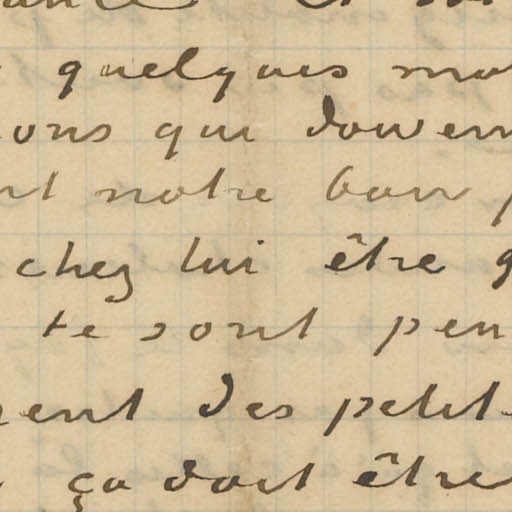 quelques
ons qui
notre bon
chez lui être
te sont peu
ent des petit
ça doit être